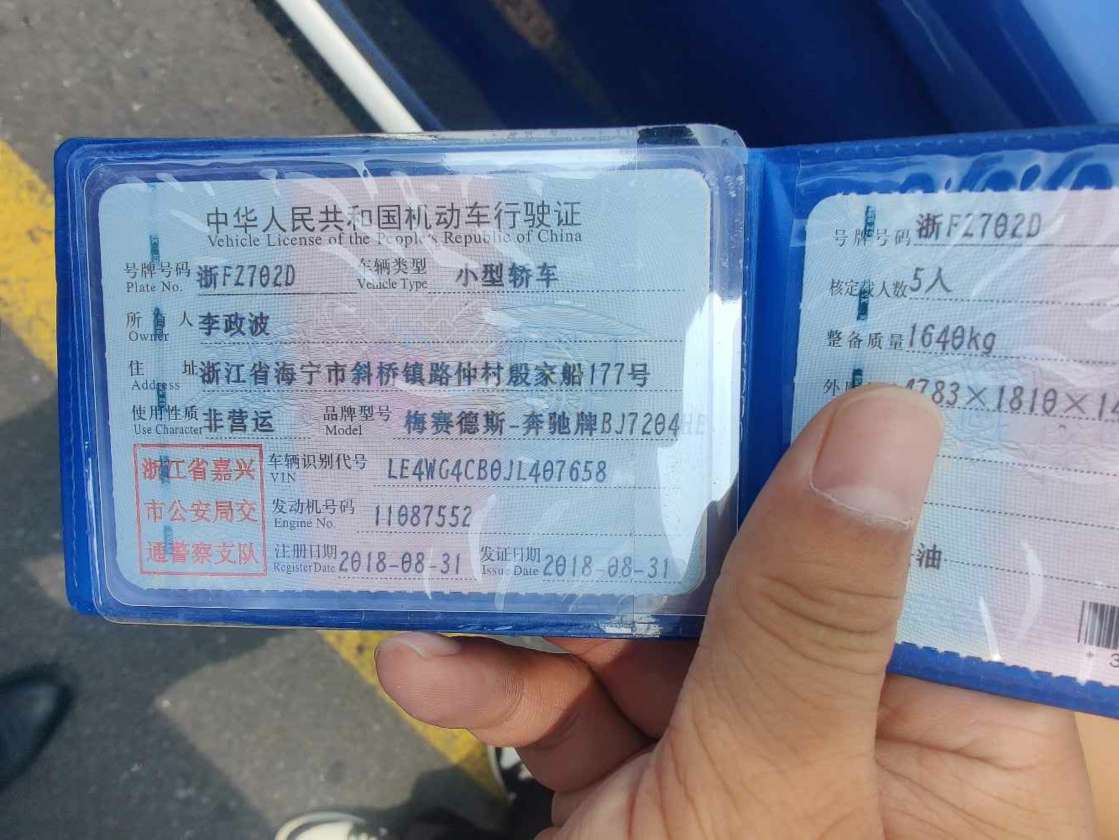 中华人民共和国机动车行驶证
Vehicle License of the People's Republic of China
号牌号码 Plate No. 浙F2702D 车辆类型 Vehicle Type 小型轿车
所有人 Owner 李政波
住址 Address 浙江省海宁市斜桥镇路仲村殷家船177号
使用性质 Use Character 非营运 品牌型号 Model 梅赛德斯-奔驰牌BJ7204HE
浙江省嘉兴
市公安局交
通警察支队
车辆识别代号 VIN LE4WG4CB0JL407658
发动机号码 Engine No. 11087552
注册日期 Register Date 2018-08-31 发证日期 Issue Date 2018-08-31
号牌号码 浙F2702D
核定载人数 5人
整备质量 1640kg
外 4783×1810×1
油